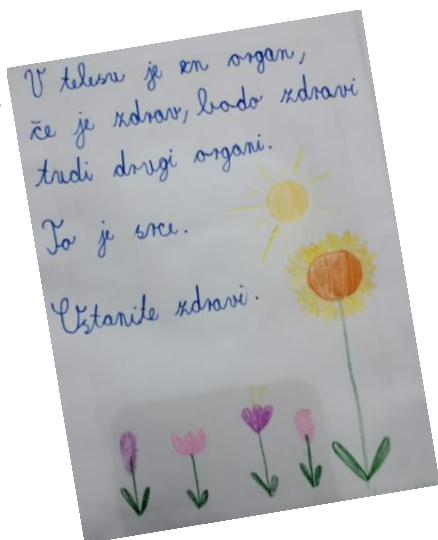 V telesu je en organ,
če je zdrav, bodo zdravi
tudi drugi organi.
To je srce.
Ostanite zdravi.